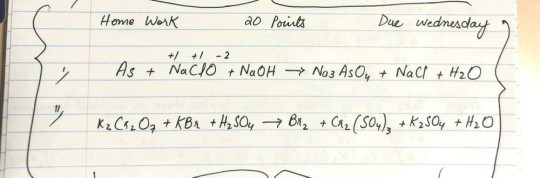 Home Work 20 Points Due Wednesday
+1 +1 -2
i, As + NaClO + NaOH → Na3AsO4 + NaCl + H2O
ii, K2Cr2O7 + KBr + H2SO4 → Br2 + Cr2(SO4)3 + K2SO4 + H2O